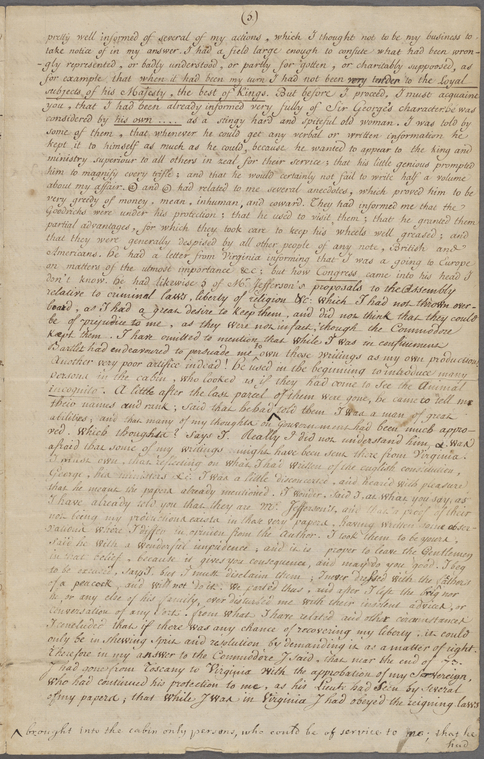 (3)
pretty well informed of several of my actions, which I thought not to be my business to
take notice of in my answer. I had a field large enough to confute what had been wron-
-gly represented, or badly understood, or partly forgotten, or charitably supposed, as
for example that when it had been my turn I had not been very tender to the Loyal
subjects of his Majesty, the best of Kings. But before I proceed, I must acquaint
you, that I had been already informed very fully of Sir George's character. He was
considered by his own .... as a stingy hard and spiteful old woman. I was told by
some of them, that whenever he could get any verbal or written information he
kept it to himself as much as he could, because he wanted to appear to the King and
ministry superiour to all others in zeal, for their service; that his little genious prompted
him to magnify every trifle; and that he would certainly not fail to write half a volume
about my affair. and had related to me several anecdotes, which proved him to be
very greedy of money, mean, inhuman, and coward. They had informed me that the
Goodricks were under his protection; that he used to visit them; that he granted them
partial advantages, for which they took care to keep his wheels well greased; and
that they were generally despised by all other people of any note, British and
Americans. He had a letter from Virginia informing that I was a going to Europe
on matters of the utmost importance &c; but how Congress came into his head I
don't know. He had likewise 3 of Mr. Jefferson's proposals to the Assembly
relative to criminal laws, liberty of religion &c. which I had not thrown over-
board, as I had a great desire to keep them, and did not think that they could
be of prejudice to me, as they were not in fact; though the Commodore
kept them. I have omitted to mention, that while I was in confinement
had endeavoured to persuade me to own those writings as my own production
Another very poor artifice indeed! He used in the beginning to introduce many
persons in the cabin, who looked as if they had come to see the Animal
incognito. A little after the last parcel of them were gone, he came to tell me
their names and rank; Said that he had told them I was a man of great
abilities; and that many of my thoughts on Government had been much appro-
ved. Which thoughts? Says I. Really I did not understand them, & was
afraid that some of my writings might have been sent there from Virginia.
I must own, that reflecting on what I had written of the english constitution,
George, his ministers &c. I was a little disconcerted, and heard with pleasure
that he meant the papers already mentioned. I wonder, Said I, at what you say, as
I have already told you that they are Mr. Jefferson's, and that a proof of their
not being my productions exists in that very paper, having written some obser-
vations where I differ in opinion from the author. I took them to be yours,
Said he with a wonderful impudence, and it is proper to leave the Gentlemen
in that belief, because it gives you consequence, and may do you good. I beg
to be excused, says I, but I must disclaim them; I never dressed with the feathers
of a peacock, and will not do it. We parted thus, and after I left the brig nor
he or any else of his family, ever disturbed me with their insolent advices, or
conversation of any sort. From what I have related and other circumstances
I concluded that if there was any chance of recovering my liberty, it could
only be in shewing spirit and resolution by demanding it as a matter of right.
Therefore in my answer to the Commodore I said, that near the end of 73.
I had gone from Toscany to Virginia with the approbation of my Sovereign,
who had continued his protection to me, as his Lieut. had seen by several
of my papers; that while I was in Virginia I had obeyed the reigning laws
^ brought into the cabin only persons, who could be of service to me; that he
had